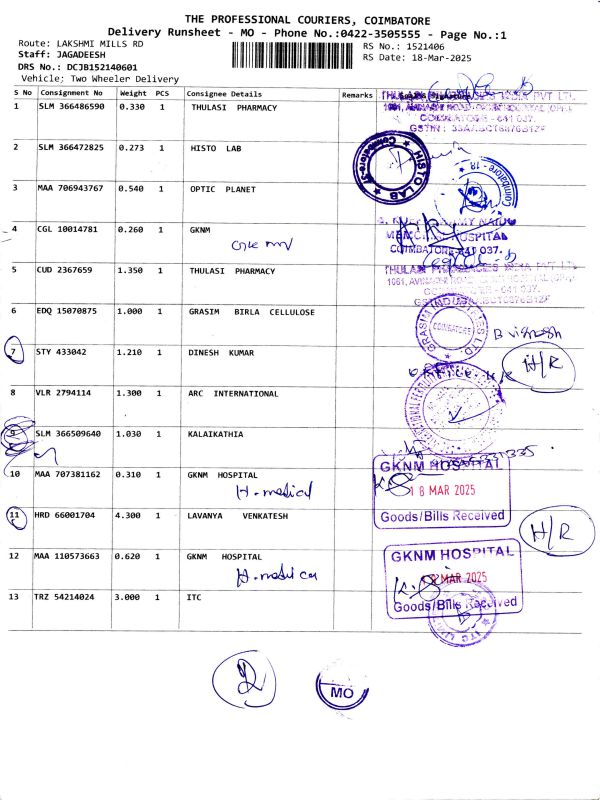 THE PROFESSIONAL COURIERS, COIMBATORE
Delivery Runsheet - MO - Phone No.:0422-3505555 - Page No.:1
Route: LAKSHMI MILLS RD
RS No.: 1521406
Staff: JAGADEESH
RS Date: 18-Mar-2025
DRS No.: DCJB152140601
Vehicle; Two Wheeler Delivery
S No Consignment No Weight PCS Consignee Details Remarks
1 SLM 366486590 0.330 1 THULASI PHARMACY
COIMBATORE - 641 037.
2 SLM 366472825 0.273 1 HISTO LAB
HISTO LAB
3 MAA 706943767 0.540 1 OPTIC PLANET
4 CGL 10014781 0.260 1 GKNM
HOSPITAL
COIMBATORE 641 037.
5 CUD 2367659 1.350 1 THULASI PHARMACY
6 EDQ 15070875 1.000 1 GRASIM BIRLA CELLULOSE
GRASIM INDUSTRIES LTD.
COIMBATORE
7 STY 433042 1.210 1 DINESH KUMAR
H/R
8 VLR 2794114 1.300 1 ARC INTERNATIONAL
9 SLM 366509640 1.030 1 KALAIKATHIA
10 MAA 707381162 0.310 1 GKNM HOSPITAL
H-medical
GKNM HOSPITAL
18 MAR 2025
Goods/Bills Received
11 HRD 66001704 4.300 1 LAVANYA VENKATESH
H/R
12 MAA 110573663 0.620 1 GKNM HOSPITAL
H-medical
GKNM HOSPITAL
MAR 2025
Goods/Bills Received
13 TRZ 54214024 3.000 1 ITC
2
MO